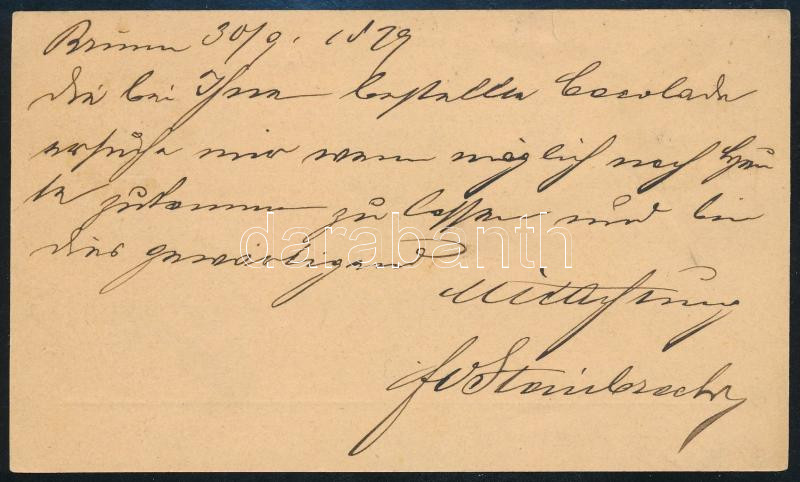 Brünn 30/9. 1879
die bei Ihnen bestellte Cocolade
ersuche mir wenn möglich noch heu
te zukommen zu lassen und bin
dies gewärtigend
Mit Achtung
Steinbrecher
darabanth